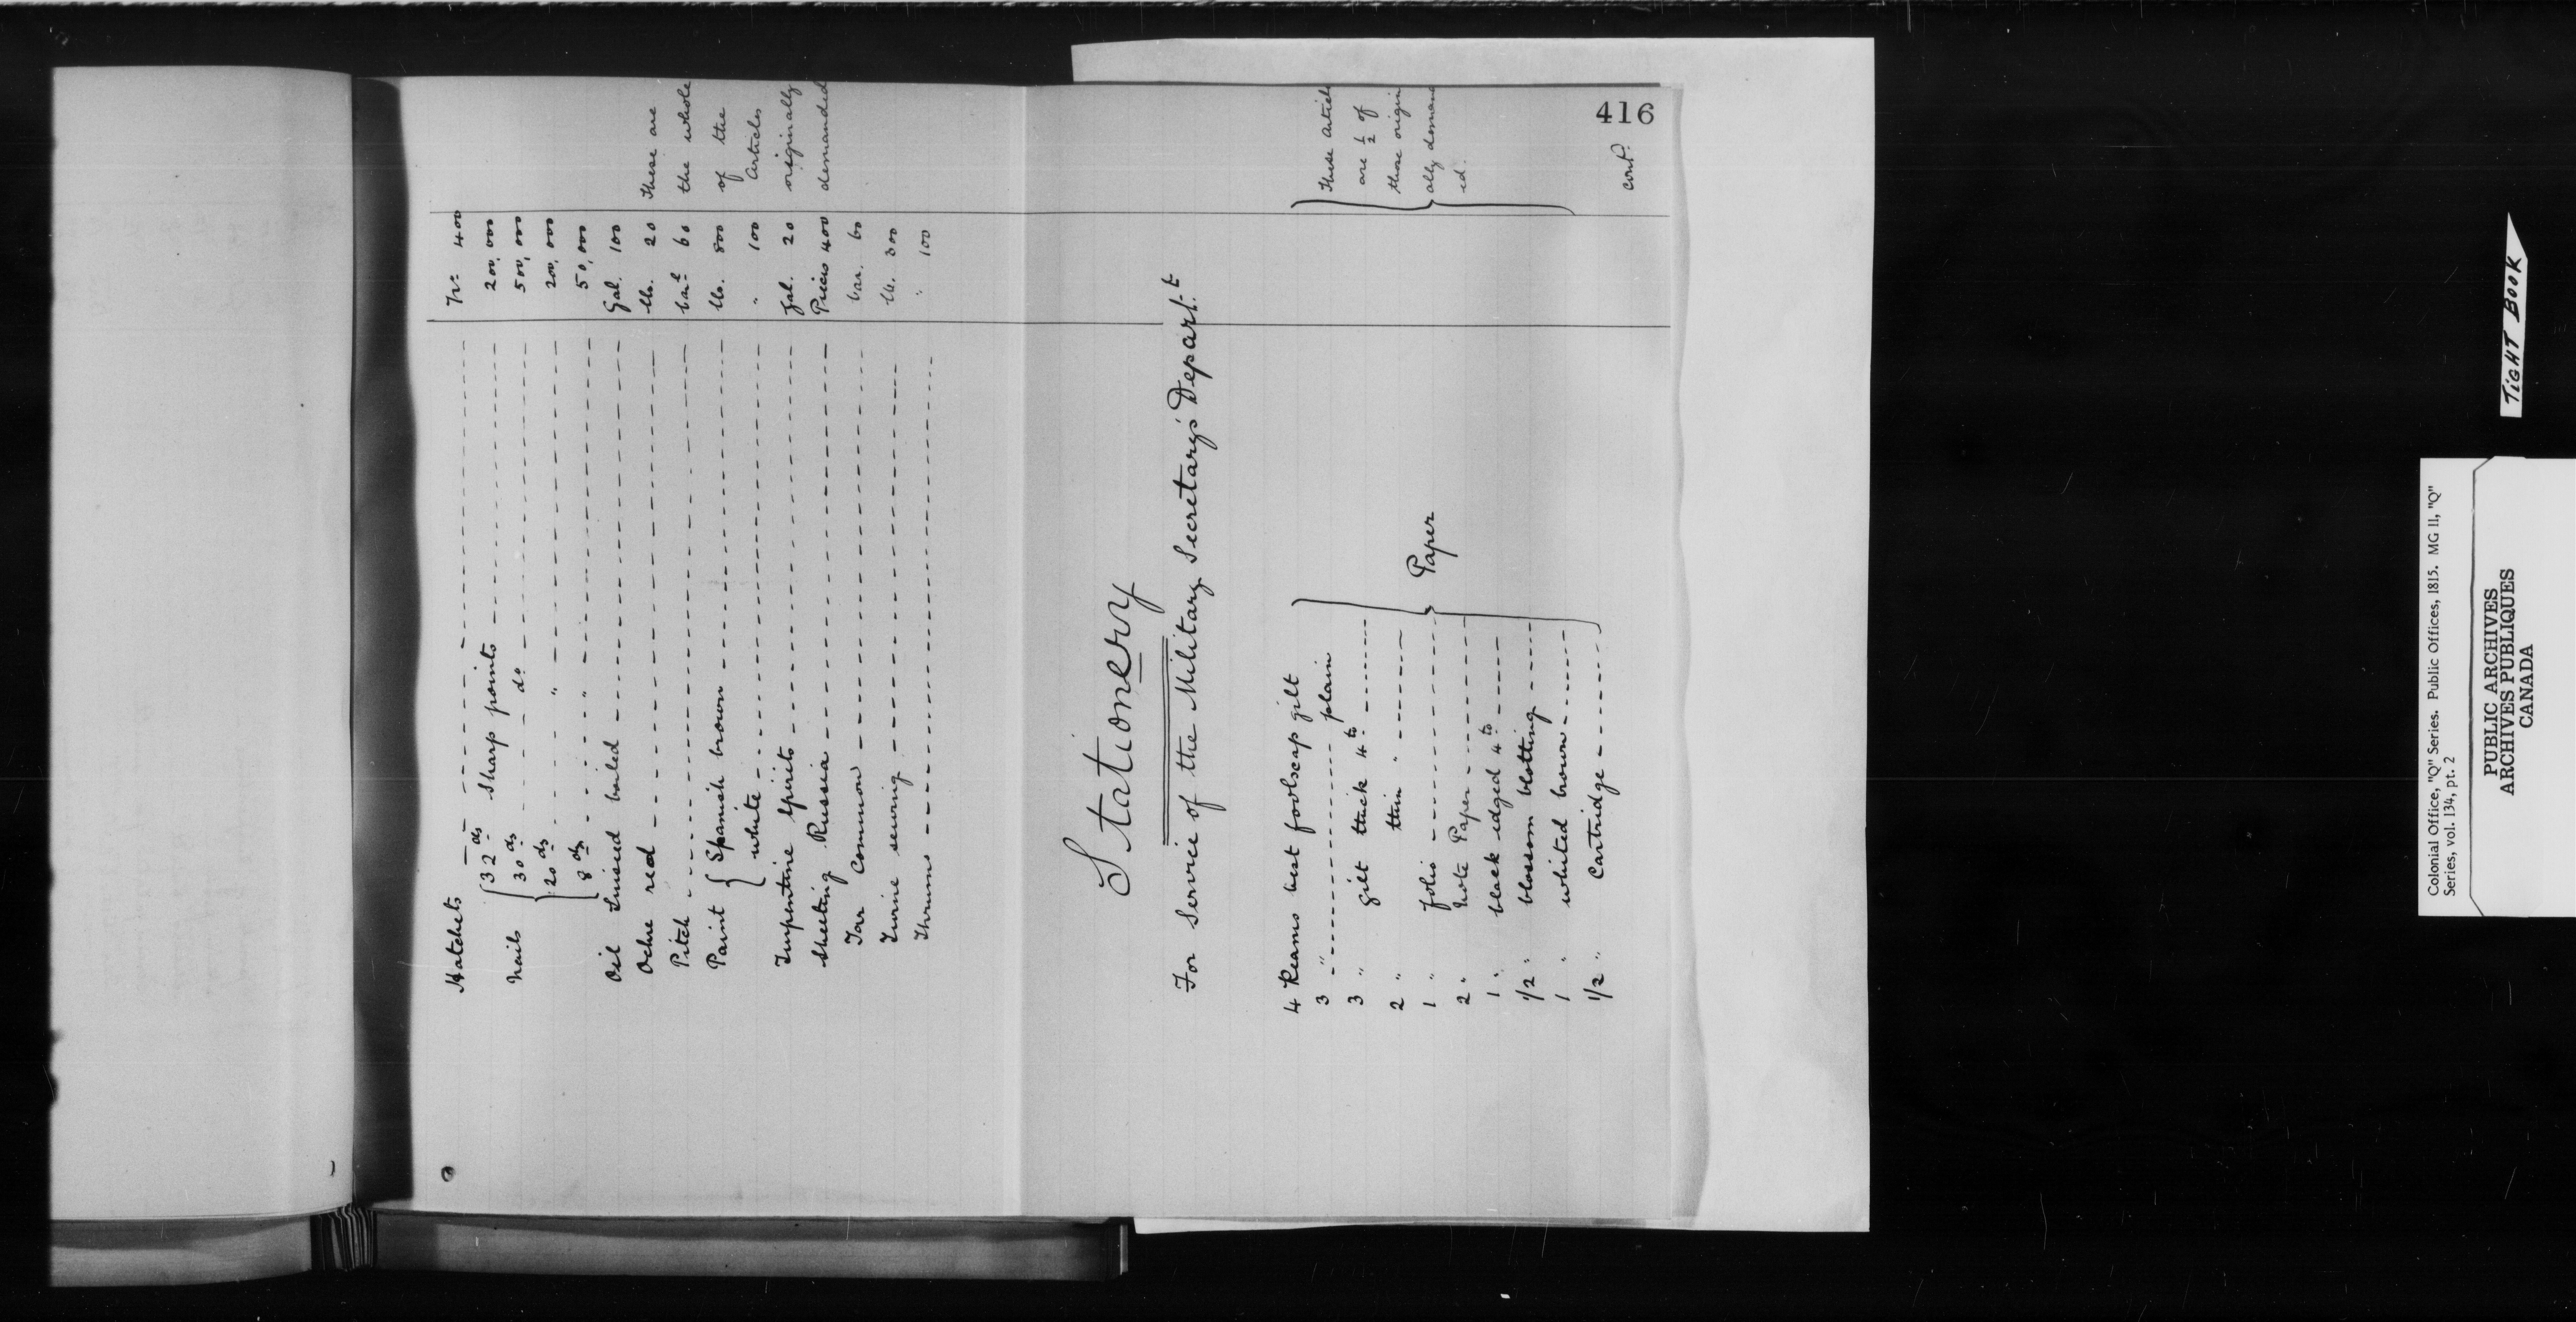 416
Hatchets No 400
Nails { 32 ds sharp points 200,000
30 ds do 500,000
20 ds " 200,000
8 ds " 50,000
Oil Linseed boiled Gal. 100
Ochre red lb. 20
Pitch barl 60
Paint { Spanish brown lb. 800
white " 100
Turpentine Spirits Gal. 20
Sheeting Russia Pieces 400
Tar Common bar. 60
Twine sewing lb. 300
Thrums " 100
These are
the whole
of the
Articles
originally
demanded
Stationery
For Service of the Military Secretary's Depart.t
4 Reams best foolscap gilt
3 " plain
3 " gilt thick 4to
2 " thin "
1 " folio
2 " Note Paper
1 " black edged 4to
1/2 " blossom blotting
1 " whited brown
1/2 " Cartridge
} Paper
These Articles
are 1/2 of
those origin
ally demand
ed.
cont.
TIGHT BOOK
Colonial Office, "Q" Series. Public Offices, 1815. MG 11, "Q"
Series, vol. 134, pt. 2
PUBLIC ARCHIVES
ARCHIVES PUBLIQUES
CANADA